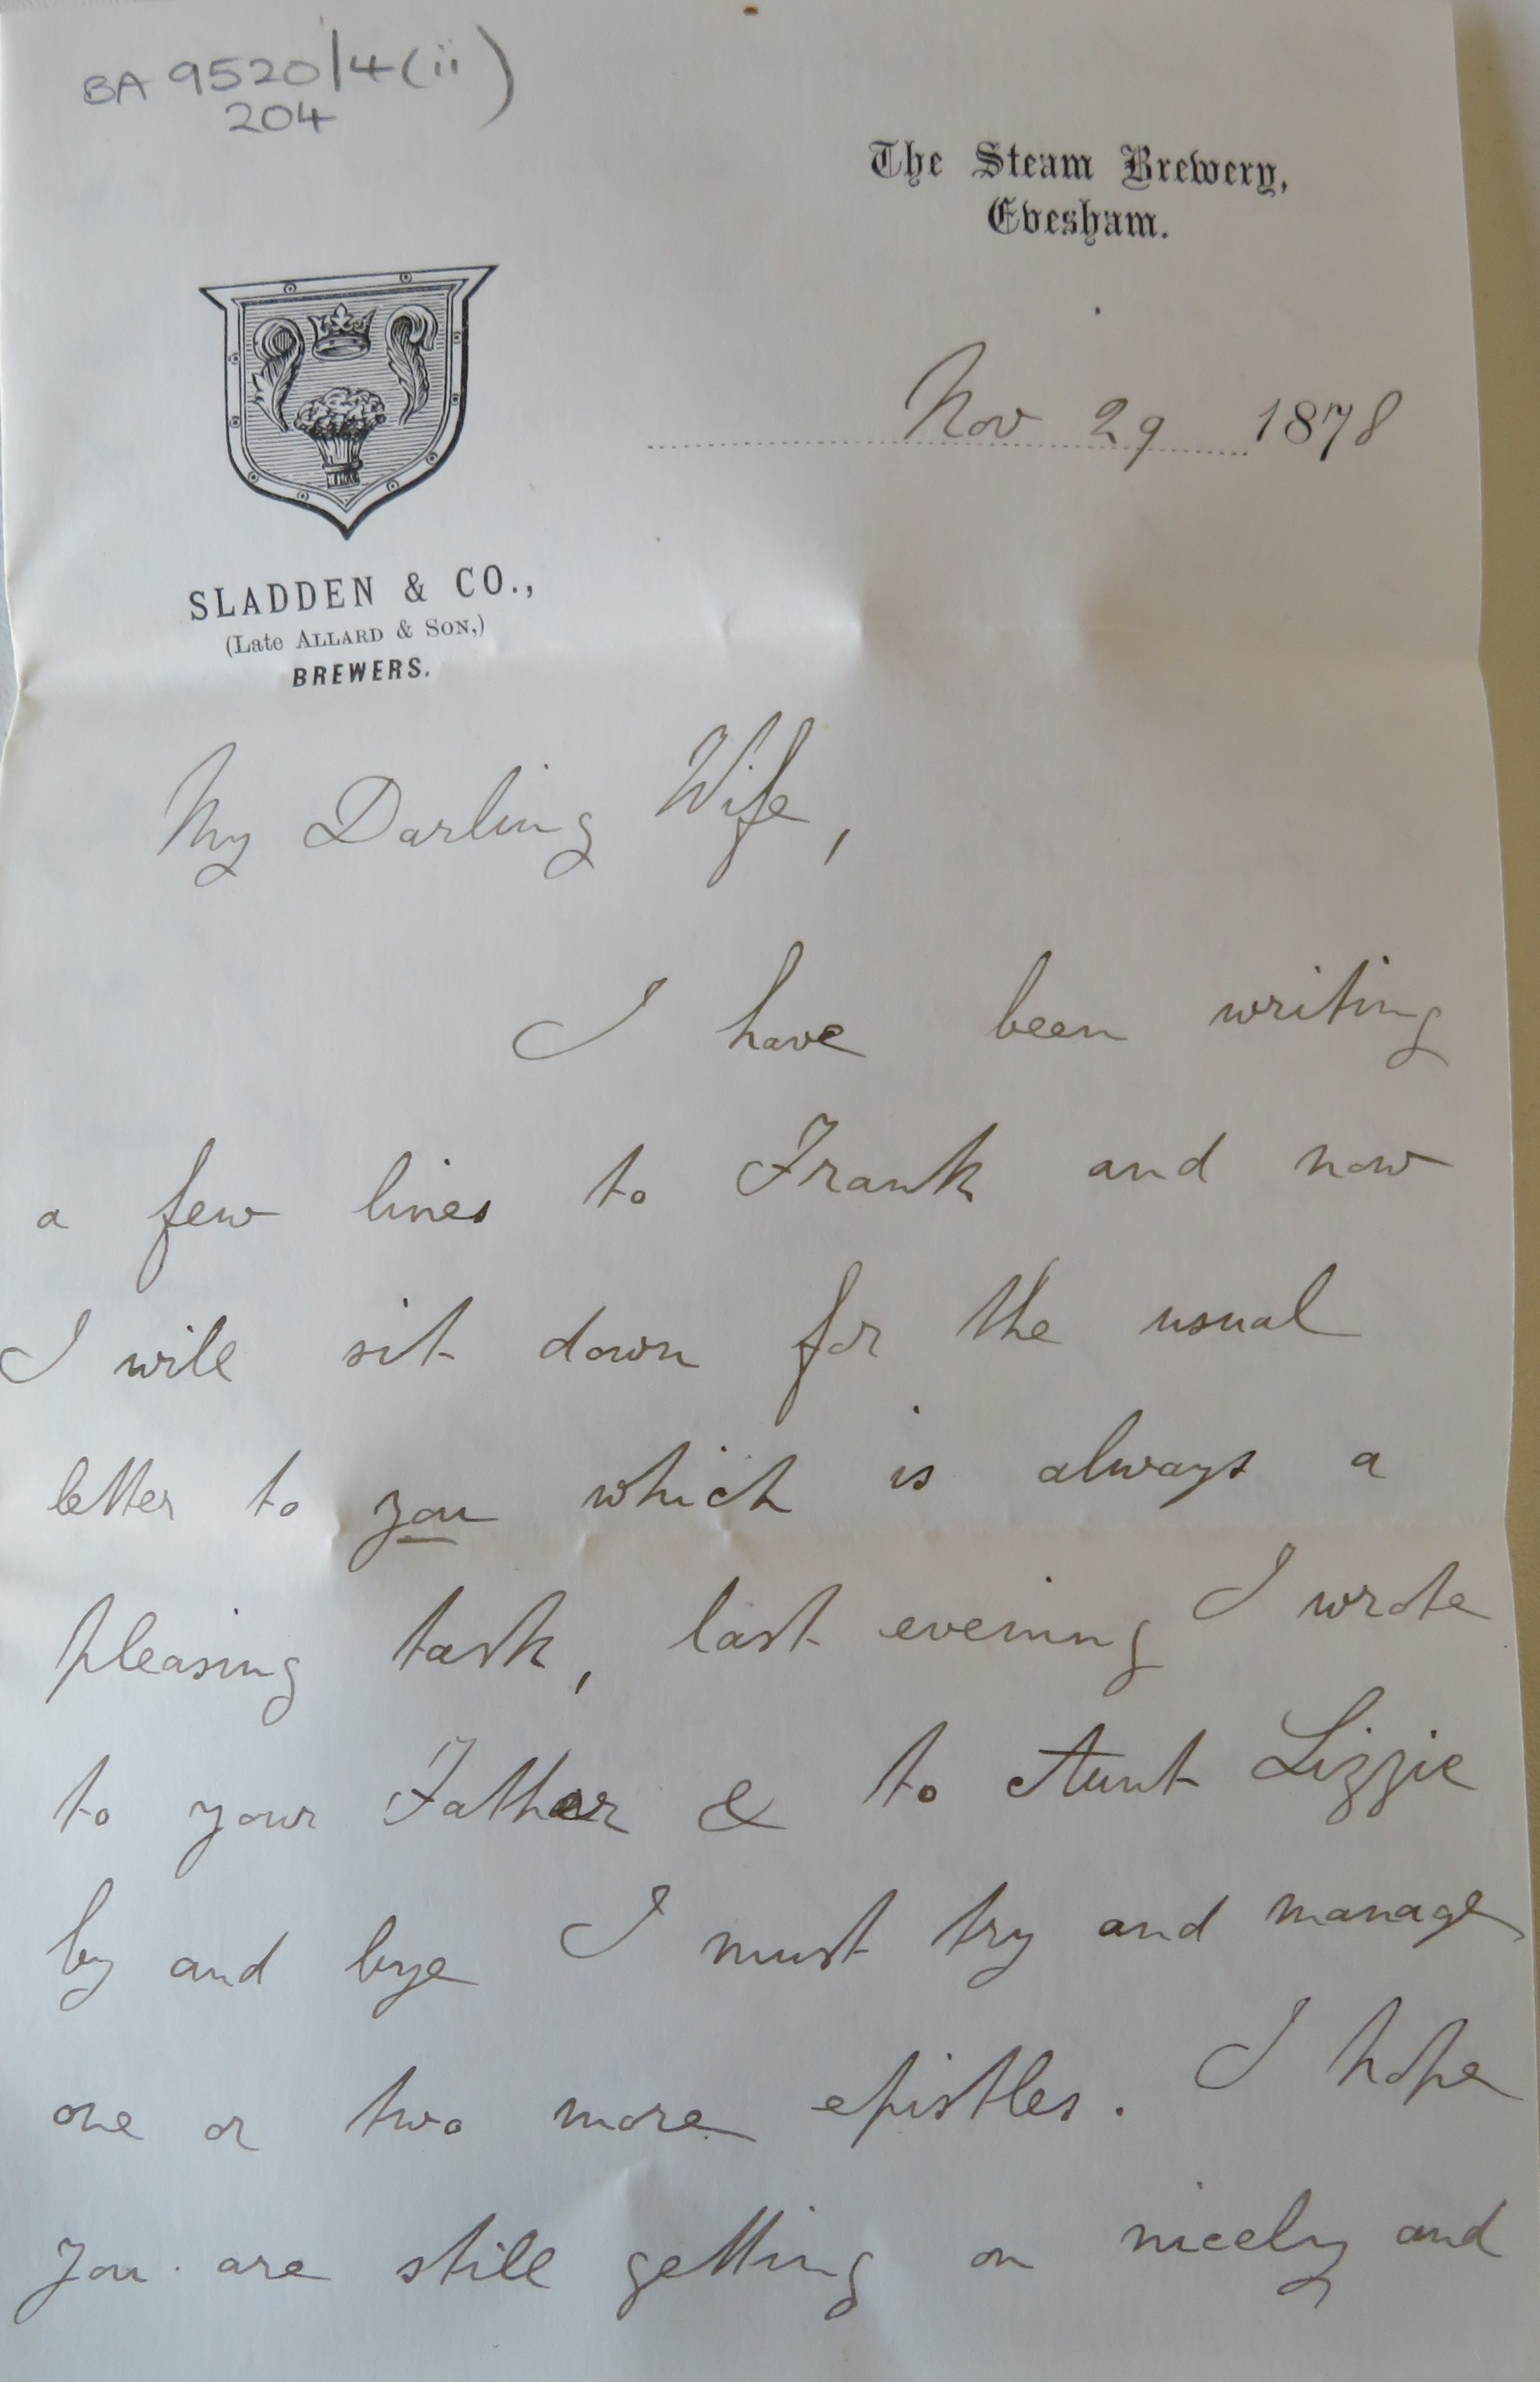 BA 9520/4(ii)
204
The Steam Brewery,
Evesham.
Nov 29 1878
SLADDEN & CO.,
(Late ALLARD & SON,)
BREWERS.
My Darling Wife,
I have been writing
a few lines to Frank and now
I will sit down for the usual
letter to you which is always a
pleasing task, last evening I wrote
to your Father & to Aunt Lizzie
by and bye I must try and manage
one or two more epistles. I hope
you are still getting on nicely and